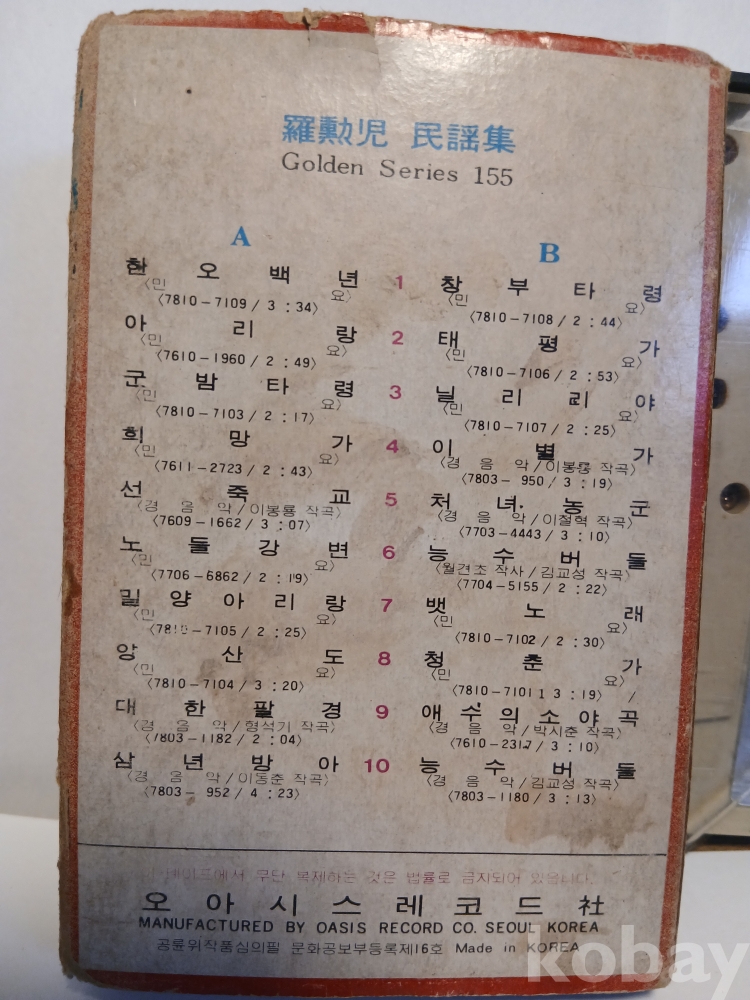 羅勲児 民謡集
Golden Series 155
A
한오백년
〈민 요〉
〈7810-7109 / 3 : 34〉
아리랑
〈민 요〉
〈7610-1960 / 2 : 49〉
군밤타령
〈민 요〉
〈7810-7103 / 2 : 17〉
희망가
〈민 요〉
〈7611-2723 / 2 : 43〉
선죽교
〈경음악/이봉룡 작곡〉
〈7609-1662 / 3 : 07〉
노들강변
〈민 요〉
〈7706-6862 / 2 : 19〉
밀양아리랑
〈민 요〉
〈7810-7105 / 2 : 25〉
양산도
〈민 요〉
〈7810-7104 / 3 : 20〉
대한팔경
〈경음악/형석기 작곡〉
〈7803-1182 / 2 : 04〉
삼년방아
〈경음악/이동춘 작곡〉
〈7803-952 / 4 : 23〉
1
2
3
4
5
6
7
8
9
10
B
창부타령
〈민 요〉
〈7810-7108 / 2 : 44〉
태평가
〈민 요〉
〈7810-7106 / 2 : 53〉
닐리리야
〈민 요〉
〈7810-7107 / 2 : 25〉
이별가
〈경음악/이봉룡 작곡〉
〈7803-950 / 3 : 19〉
처녀농군
〈경음악/이철혁 작곡〉
〈7703-4443 / 3 : 10〉
능수버들
〈월견초 작사/김교성 작곡〉
〈7704-5155 / 2 : 22〉
뱃노래
〈민 요〉
〈7810-7102 / 2 : 30〉
청춘가
〈민 요〉
〈7810-7101 3 : 19〉 /
애수의소야곡
〈경음악/박시춘 작곡〉
〈7610-2317 / 3 : 10〉
능수버들
〈경음악/김교성 작곡〉
〈7803-1180 / 3 : 13〉
테이프에서 무단 복제하는 것은 법률로 금지되어 있읍니다.
오아시스레코드社
MANUFACTURED BY OASIS RECORD CO. SEOUL KOREA
공륜위작품심의필 문화공보부등록제16호 Made in KOREA
kobay